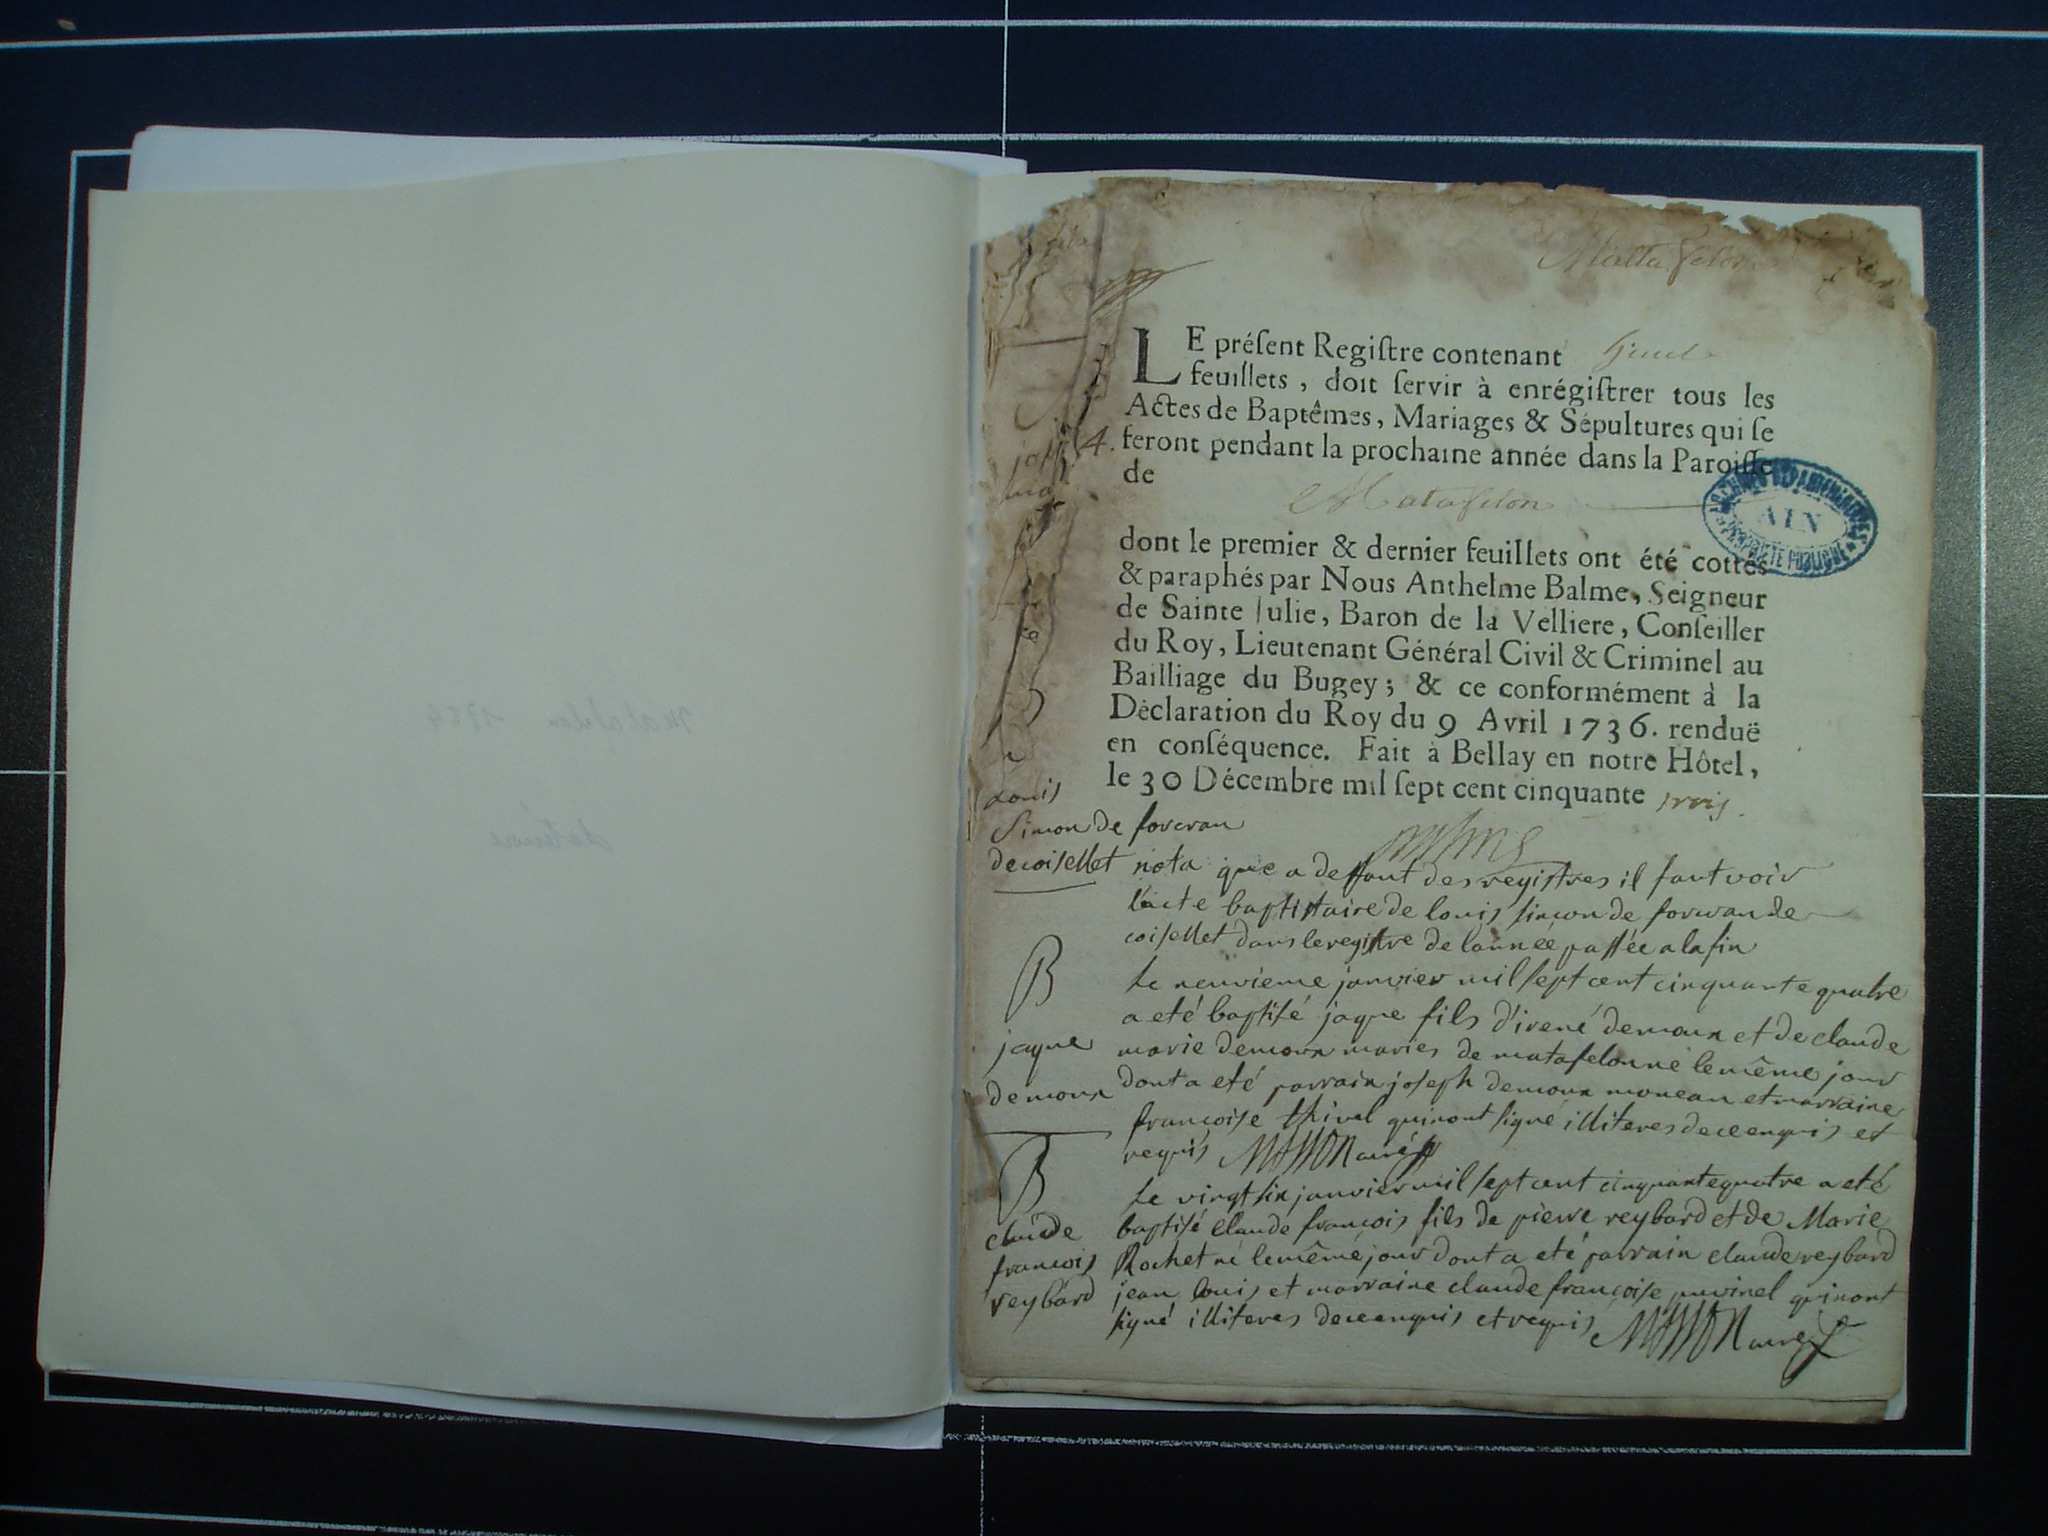 Matta felon
LE préſent Regiſtre contenant
feuillets, doit ſervir à enrégiſtrer tous les
Actes de Baptêmes, Mariages & Sépultures qui ſe
4. feront pendant la prochaine année dans la Paroiſſe
de
Matafelon
ARCHIVES DEPARTEMENTALES
AIN
PROPRIETE PUBLIQUE
dont le premier & dernier feuillets ont été cottés
& paraphés par Nous Anthelme Balme, Seigneur
de Sainte Julie, Baron de la Velliere, Conſeiller
du Roy, Lieutenant Général Civil & Criminel au
Bailliage du Bugey; & ce conformément à la
Déclaration du Roy du 9 Avril 1736. renduë
en conſéquence. Fait à Bellay en notre Hôtel,
le 30 Décembre mil ſept cent cinquante trois.
Louis
Simon de forcran
decoisellet
nota que a deffaut des registres il faut voir
l'acte baptistaire de louis simon de forcran de
coisellet dans le registre de l'année passée a la fin
B
jaque
demoux
Le neuvieme janvier mil sept cent cinquante quatre
a eté baptisé jaque fils d'irené demoux et de claude
marie demoux mariés de matafelon né le même jour
dont a eté parrain joseph demoux moneau et marraine
francoise thivel qui n'ont signé illiteres de ce enquis et
requis MASSON curé
B
claude
francois
reybard
Le vingt six janvier mil sept cent cinquante quatre a eté
baptisé claude francois fils de pierre reybard et de Marie
Rochet né le même jour dont a eté parrain claude reybard
jean louis et marraine claude françoise juvinel qui n'ont
signé illiteres de ce enquis et requis MASSON curé